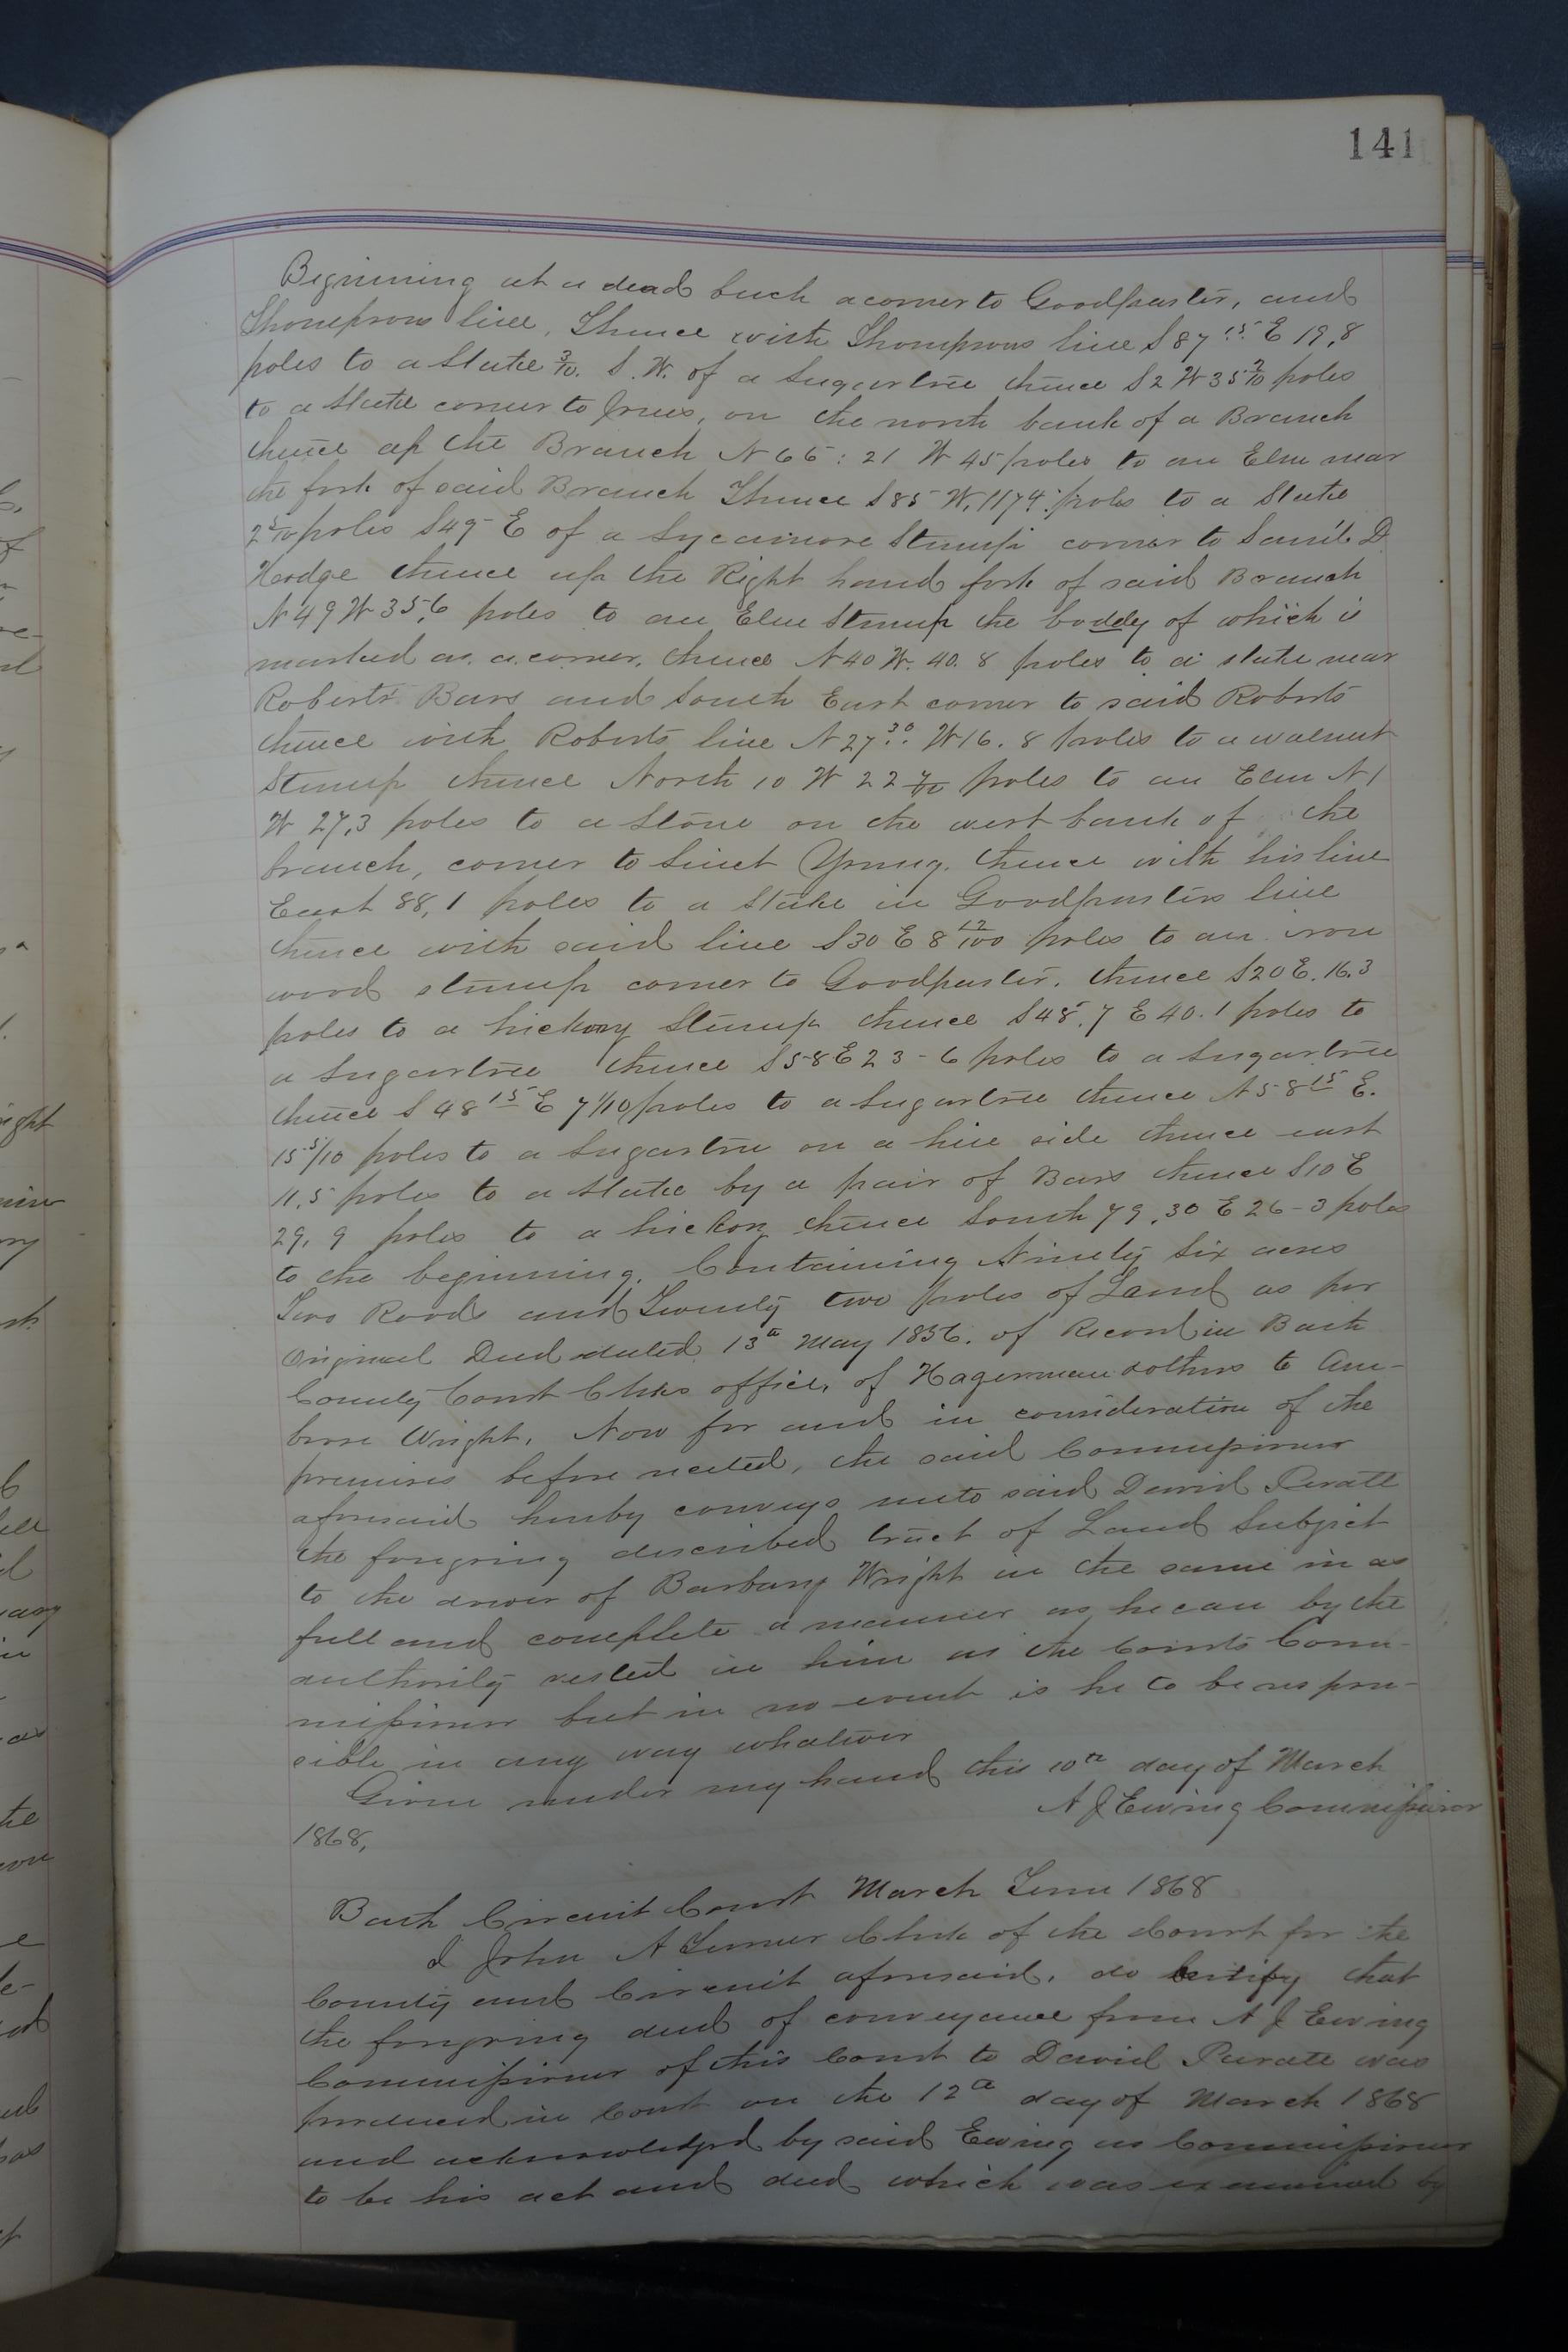 141
Beginning at a dead buck a corner to Goodpaster, and
Thompsons line. Thence with Thompsons line S 87 15 E 19,8
poles to a Stake 3/10. S. W. of a Sugartree thence S 2 W 35 2/10 poles
to a Stake corner to Jones, on the north bank of a Branch
thence up the Branch N 66 : 21 W 45 poles to an Elm near
the fork of said Branch Thence S 85 W, 1174 poles to a Stake
poles S 49 E of a Sycamore Stump corner to Saml D
Hodge thence up the Right hand fork of said Branch
N 49 W 35,6 poles to an Elm Stump the boddy of which is
marked as a corner, thence N 40 W. 40. 8 poles to a stake near
Roberts Bars and South East corner to said Roberts
thence with Roberts line N 27 30 W 16. 8 poles to a walnut
Stump thence North 10 W 22 poles to an Elm N 1
W 27,3 poles to a Stone on the west bank of the
branch, corner to Young. thence with his line
East 88, 1 poles to a Stake in Goodpasters line
thence with said line S 30 E 8 12/100 poles to an iron
wood stump corner to Goodpaster. thence S 20 E. 16.3
poles to a hickory Stump thence S 48,7 E 40.1 poles to
a Sugartree thence S 58 E 23-6 poles to a Sugartree
thence S 48 15 E 7 1/10 poles to a Sugartree thence N 58 15 E.
15 5/10 poles to a Sugartree on a hill side thence east
11,5 poles to a Stake by a pair of Bars thence S 10 E
29, 9 poles to a hickory thence South 79,30 E 26-3 poles
to the beginning. Containing Ninety Six acres
Two Roods and Twenty two poles of Land as per
Original Deed dated 13th May 1856. of Record in Bath
County Court Clks office, of Hagerman &others to Am-
brose Wright. Now for and in consideration of the
premises before recited, the said Commissioner
aforesaid hereby conveys unto said David
the foregoing described tract of Land Subject
to the dower of Barbary Wright in the same in as
full and complete a manner as he can by the
authority vested in him as the Courts Com-
missioner but in no event is he to be respon-
sible in any way whatever
Given under my hand this 10th day of March
1868,
A J Ewing Commissioner
Bath Circuit Court March Term 1868
I John A Turner Clerk of the Court for the
County and Circuit aforesaid, do certify that
the foregoing deed of conveyance from A J Ewing
Commissioner of this Court to David was
produced in Court on the 12th day of March 1868
and acknowledged by said Ewing as Commissioner
to be his act and deed which was examined by